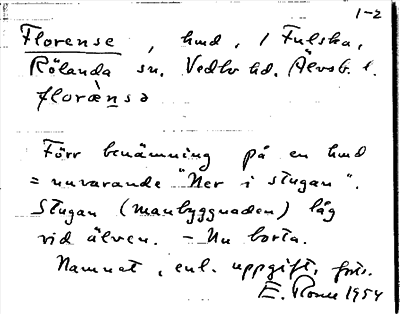 1-2
Florense, hmd, / Fulska,
Rölanda sn. Vedbo hd. Älvsb. l.
floræ̀nsə
Förr benämning på en hmd
= nuvarande "Ner i stugan".
Stugan (manbyggnaden) låg
vid älven. – Nu borta.
Namnet, enl. uppgift,
E. 1954